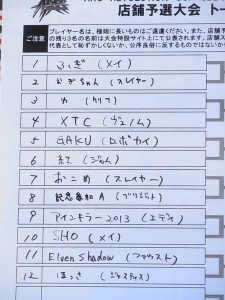 店舗予選大会 ト
ご注意
プレイヤー名は、極端に長いものはご遠慮ください。また、店舗予
の残り3名の名前は大会特設サイト上にて公表されます。店舗
代表として恥ずかしくないか、公序良俗に反するものではないか
1 ふぎ (メイ)
2 おぎちゃん (スレイヤー)
3 ゆ (クリフ)
4 XTC (ヴェノム)
5 GAKU (ロボカイ)
6 紅 (ジャム)
7 おこめ (スレイヤー)
8 記念参加A (ブリジット)
9 アインキラー2013 (エディ)
10 SHO (メイ)
11 Elven Shadow (ファウスト)
12 ほっさ (ジャスティス)